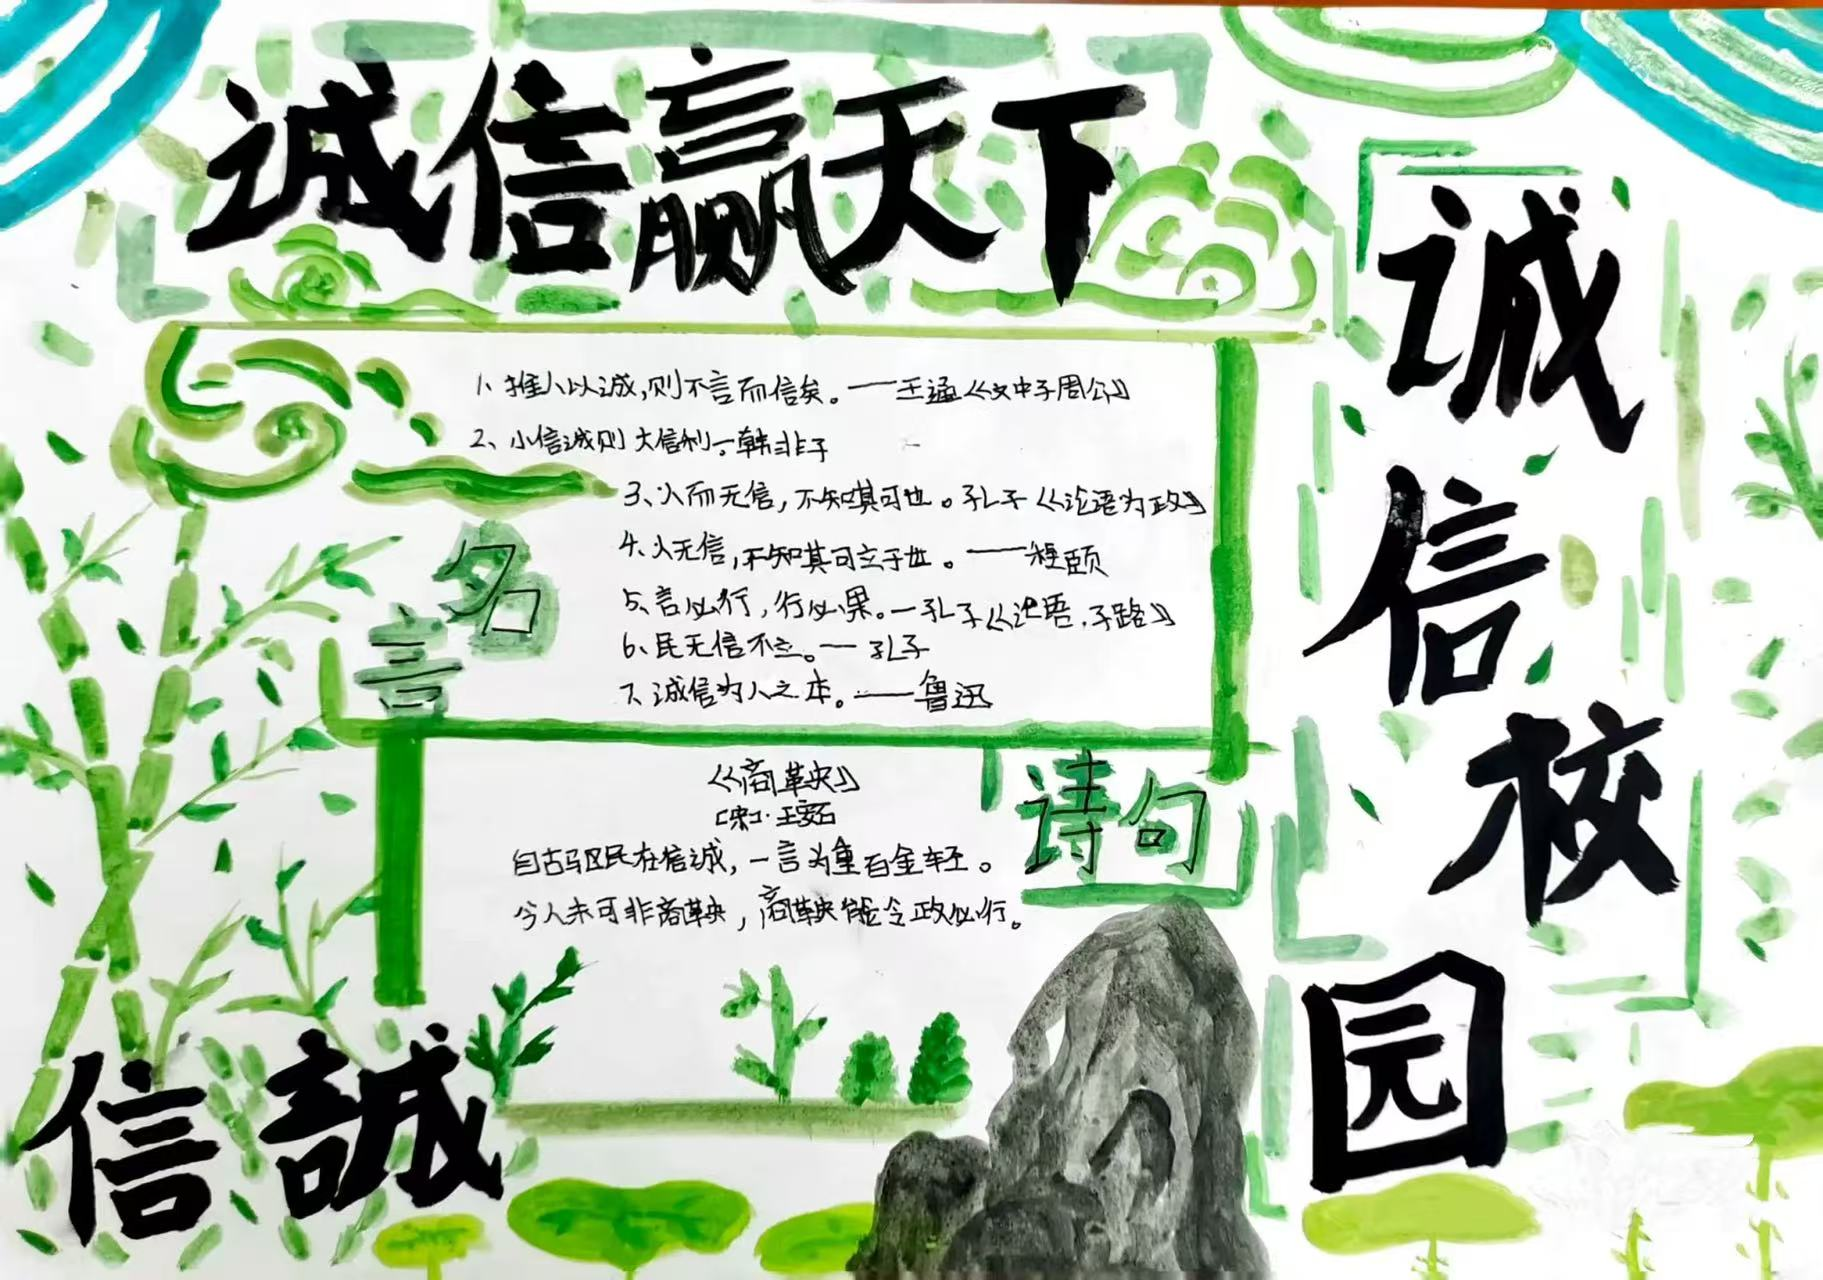 诚信赢天下
1、推人以诚,则不言而信矣。——王通《文中子周公》
2、小信诚则大信利。—韩非子
3、人而无信,不知其可也。孔子《论语为政》
4、人无信,不知其可立于世。——程颐
5、言必行,行必果。—孔子《论语.子路》
6、民无信不立。—孔子
7、诚信为人之本。——鲁迅
名言
《商鞅》
[宋]·王安石
自古驱民在信诚,一言为重百金轻。
今人未可非商鞅,商鞅能令政必行。
诗句
诚信校园
信誠